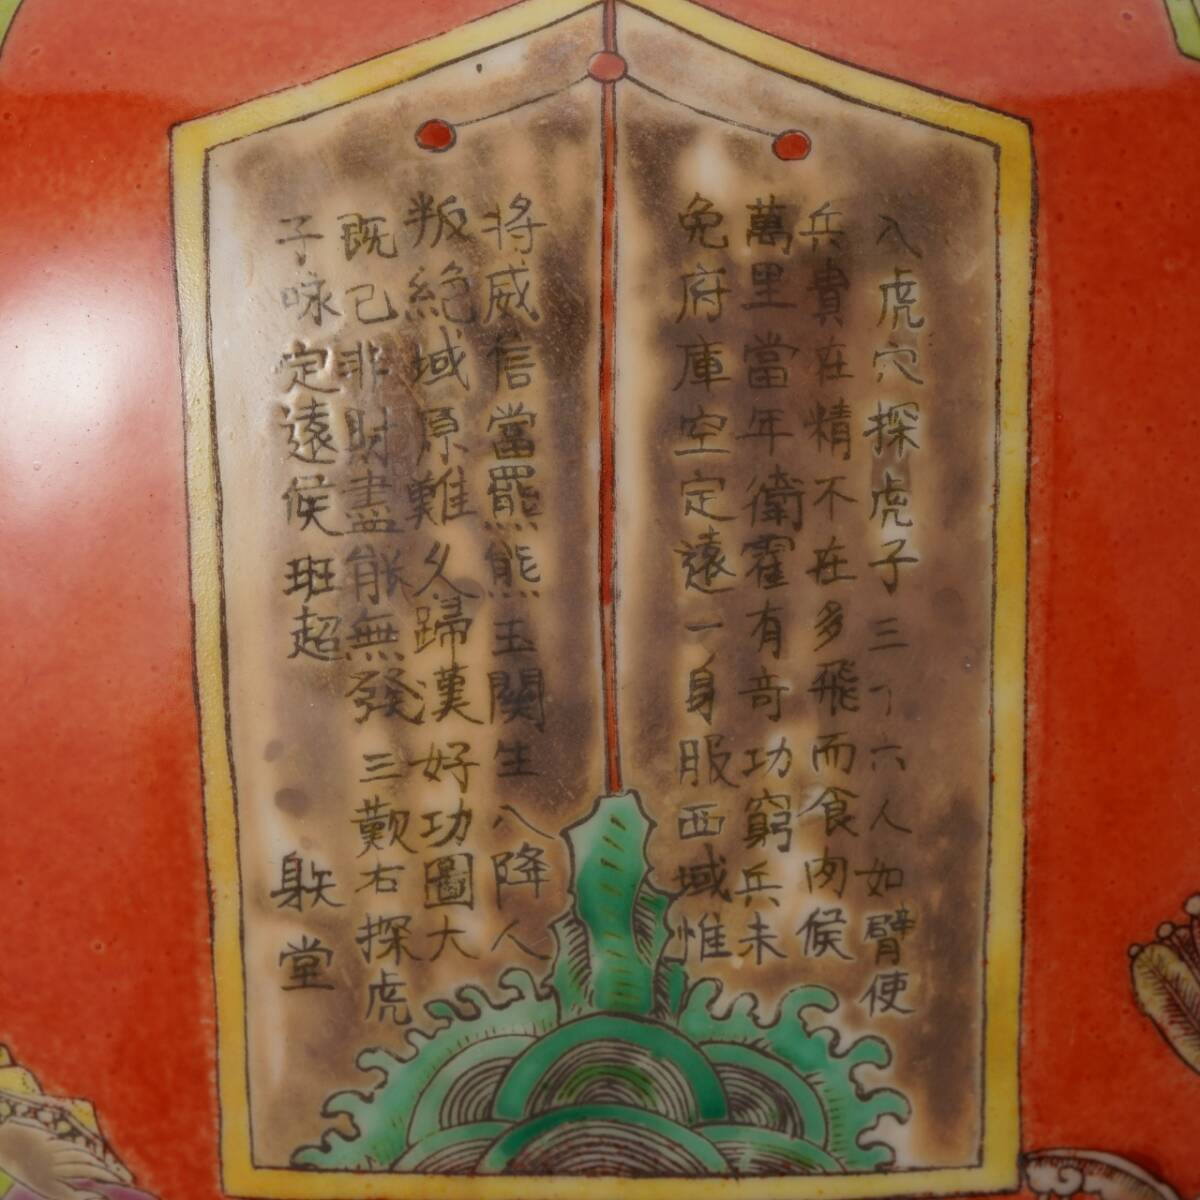 入虎穴探虎子三十六人如臂使
兵貴在精不在多飛而食肉侯
萬里當年衛霍有奇功窮兵未
免府庫空定遠一身服西域惟
將威信當羆熊玉關生入降人
叛絕域原難久歸漢好功圖大
既已非財盡能無發三歎右探虎
子咏定遠侯班超 躲堂